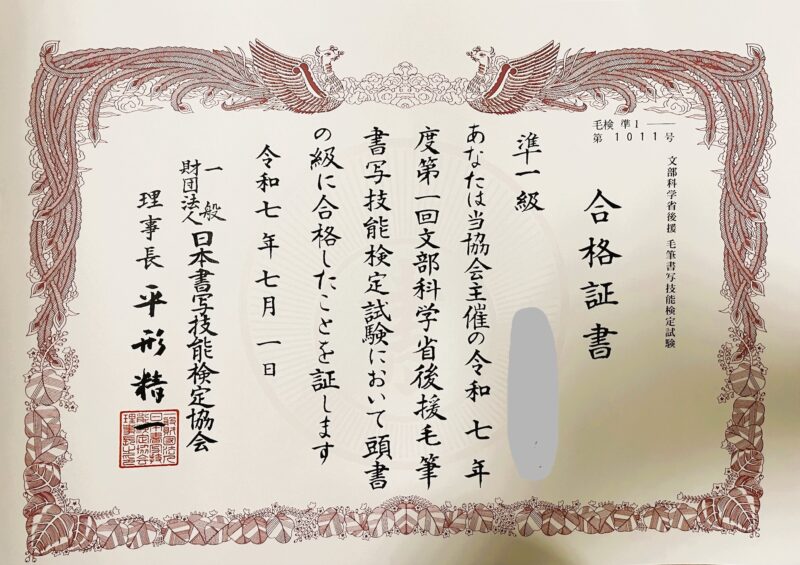 毛検 準1 ――
第 1011 号
文部科学省後援 毛筆書写技能検定試験
合格証書
準一級
あなたは当協会主催の令和七年
度第一回文部科学省後援毛筆
書写技能検定試験において頭書
の級に合格したことを証します
令和七年七月一日
一般財団法人 日本書写技能検定協会
理事長 平形精一